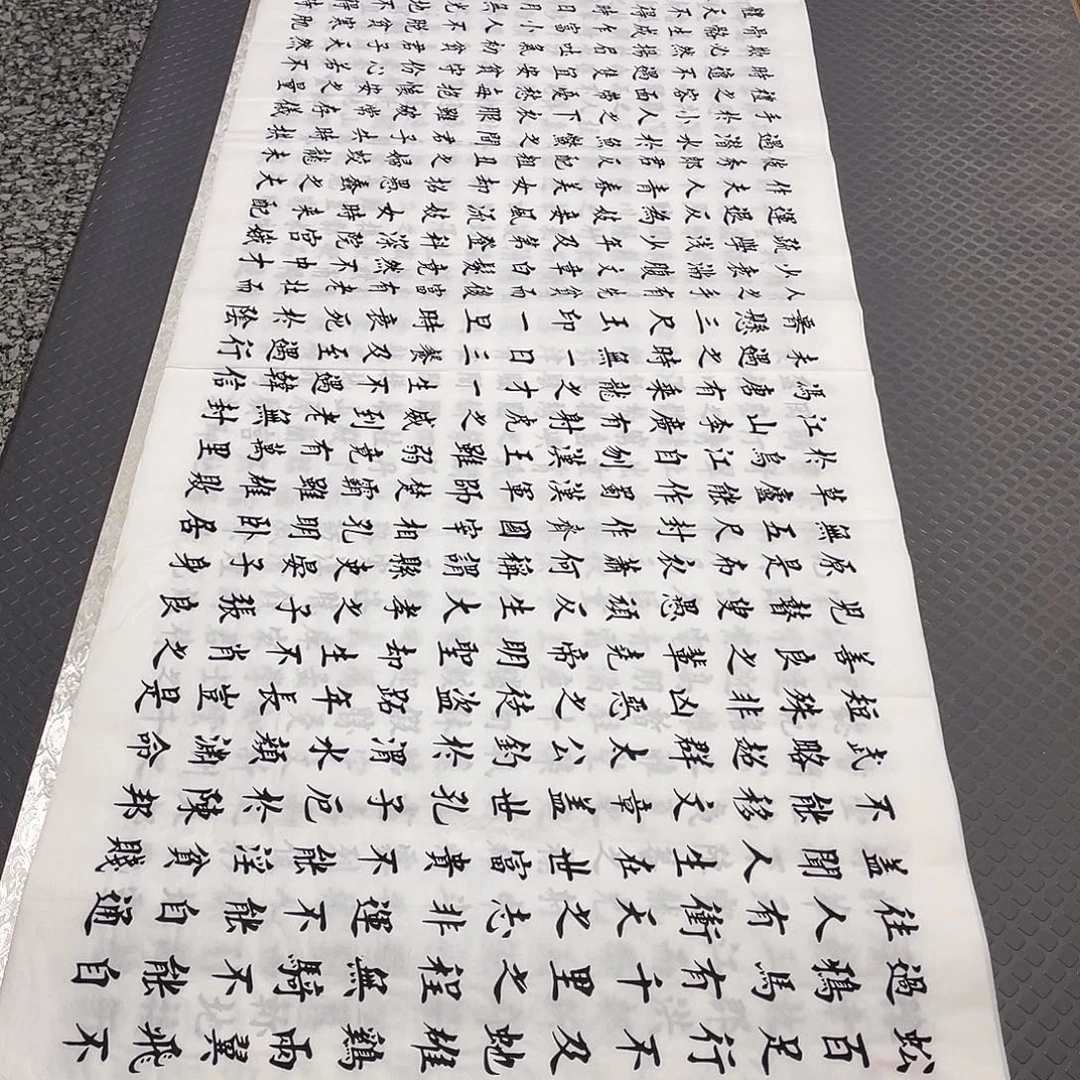 蚣百足行不及蛇雄鷄兩翼飛不
過鴉馬有千里之程無騎不能自
往人有衝天之志非運不能自通
盖聞人生在世富貴不能淫貧賤
不能移文章盖世孔子厄於陳邦
武略超群太公釣於渭水顏淵命
短殊非凶惡之徒盗跖年長豈是
善良之輩堯帝明聖却生不肖之
兒瞽叟愚頑反生大孝之子張良
原是布衣蕭何稱謂縣吏晏子身
無五尺封作齊國宰相孔明卧居
草廬能作蜀漢軍師楚霸雖雄敗
於烏江自刎漢王雖弱竟有萬里
江山李廣有射虎之威到老無封
馮唐有乘龍之才一生不遇韓信
未遇之時無一日三餐及至遇行
懸三尺玉印一旦時衰死於陰
人之手有先貧而後富有老壯而
少衰滿腹文章白髮竟然不中才
疏學淺少年及第登科深院宮娥
運退反為妓妾風流妓女時來配
作夫人青春美女却招愚蠢之夫
俊秀郎君反配粗丑之婦蛟龍未
遇潛水於魚鱉之間君子失時拱
手於小人之下衣服雖破常存儀
禮之容面帶憂愁每抱懷安之量
時遭不遇只宜安貧守份心若不
欺必然揚眉吐氣初貧君子天然
骨骼生成乍富小人不脫貧寒肌
體天不得時日月無光地不得時